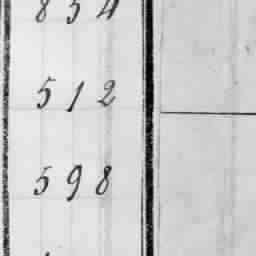 834
512
598